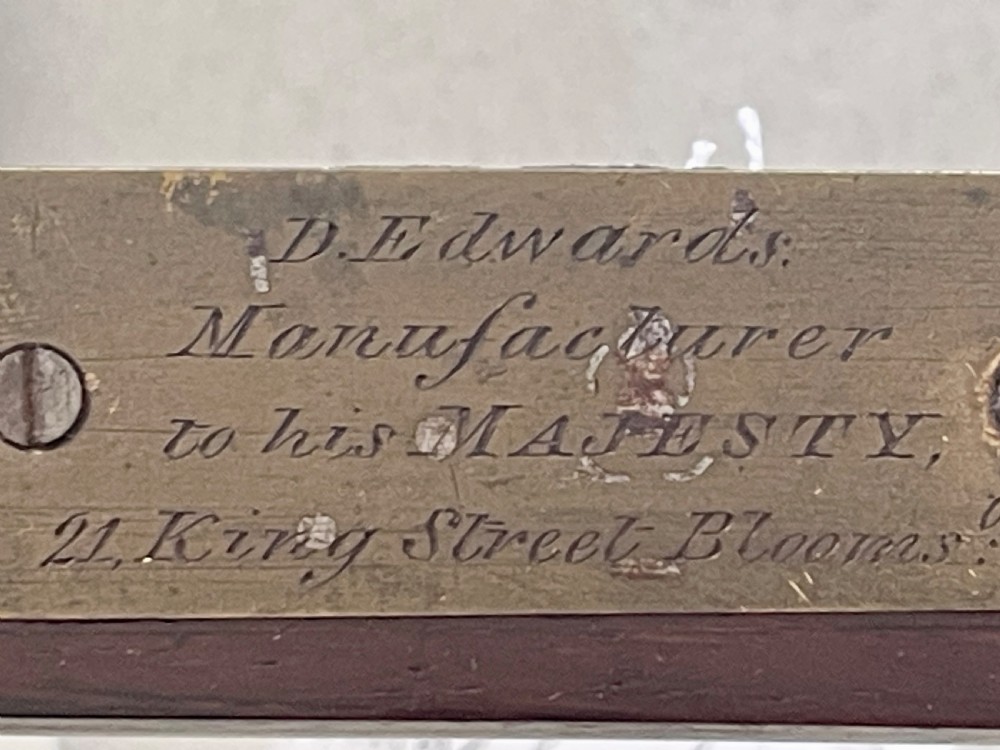 D. Edwards.
Manufacturer
to his MAJESTY,
21, King Street Blooms.